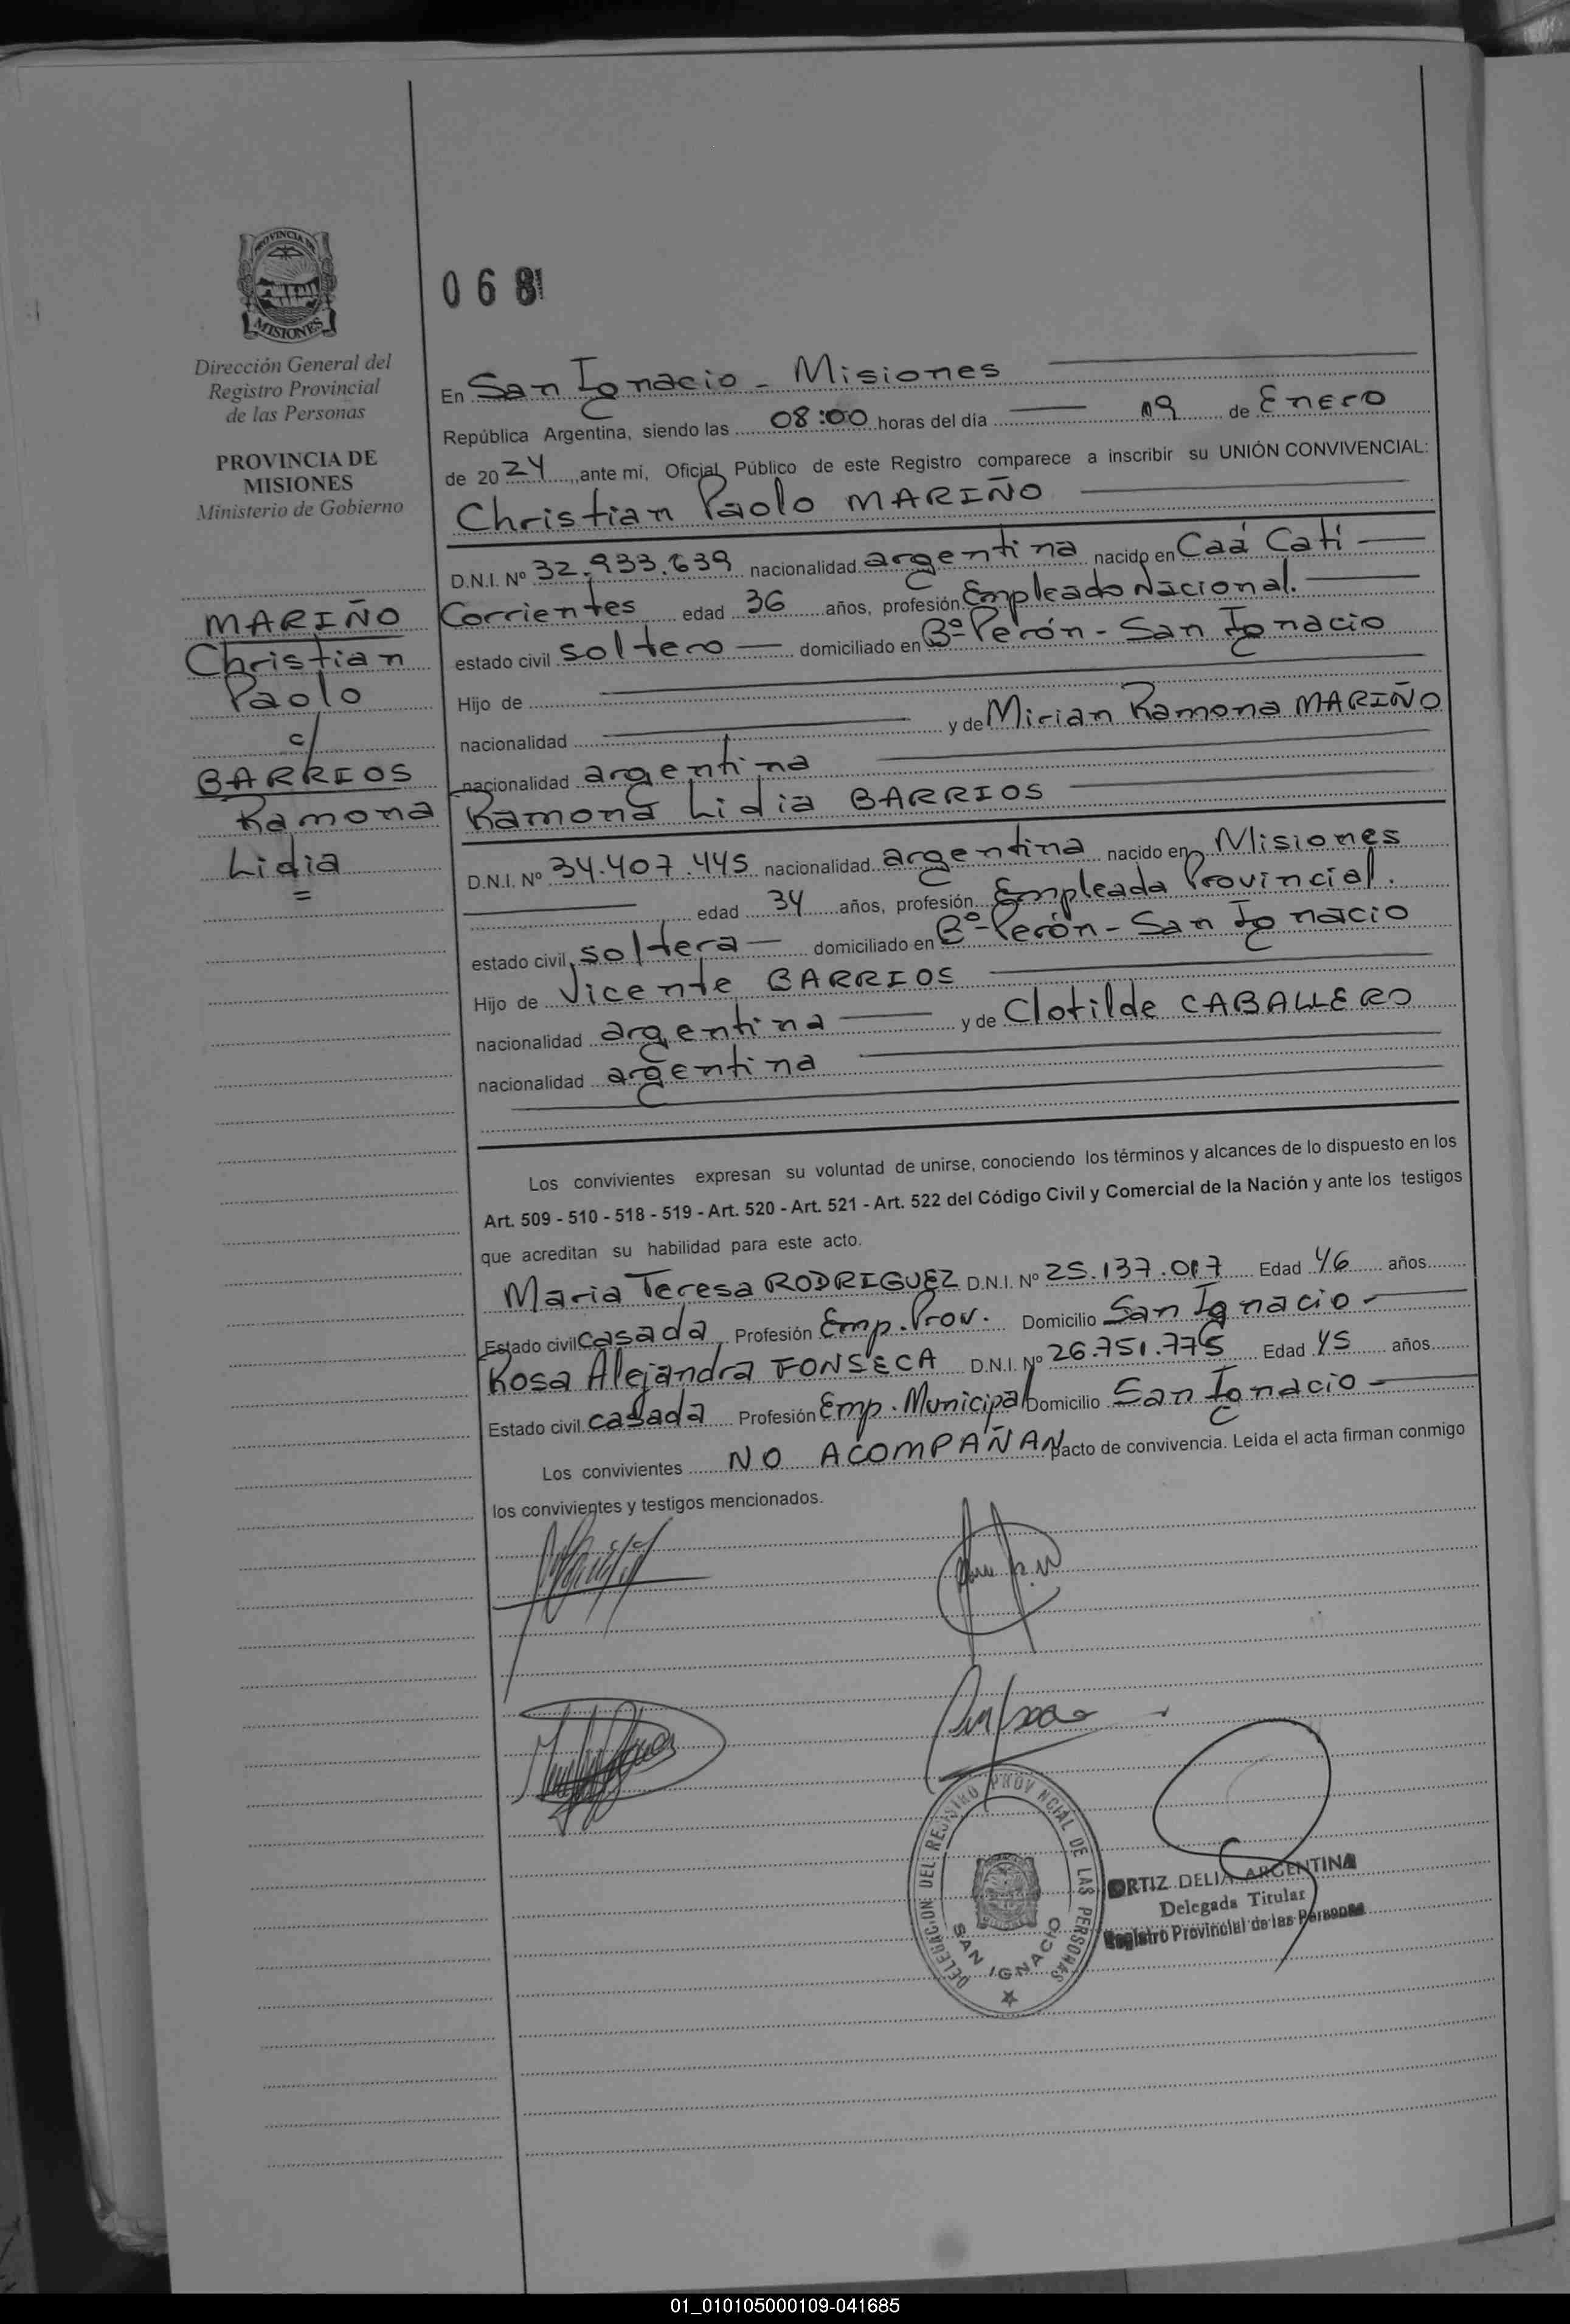 PROVINCIA DE
MISIONES
Dirección General del
Registro Provincial
de las Personas
PROVINCIA DE
MISIONES
Ministerio de Gobierno
MARIÑO
Christian
Paolo
c/
BARRIOS
Ramona
Lidia
=
068
En San Ignacio - Misiones
República Argentina, siendo las 08:00 horas del día 09 de Enero
de 2024, ante mí, Oficial Público de este Registro comparece a inscribir su UNIÓN CONVIVENCIAL:
Christian Paolo MARIÑO
D.N.I. Nº 32.933.639 nacionalidad argentina nacido en Caá Catí
Corrientes edad 36 años, profesión Empleado Nacional.
estado civil soltero domiciliado en Bº Perón - San Ignacio
Hijo de
nacionalidad y de Mirian Ramona MARIÑO
nacionalidad argentina
Ramona Lidia BARRIOS
D.N.I. Nº 34.407.445 nacionalidad argentina nacido en Misiones
edad 34 años, profesión Empleada Provincial.
estado civil soltera domiciliado en Bº Perón - San Ignacio
Hijo de Vicente BARRIOS
nacionalidad argentina y de Clotilde CABALLERO
nacionalidad argentina
Los convivientes expresan su voluntad de unirse, conociendo los términos y alcances de lo dispuesto en los
Art. 509 - 510 - 518 - 519 - Art. 520 - Art. 521 - Art. 522 del Código Civil y Comercial de la Nación y ante los testigos
que acreditan su habilidad para este acto.
Maria Teresa RODRIGUEZ D.N.I. Nº 25.137.017 Edad 46 años
Estado civil casada Profesión Emp. Prov. Domicilio San Ignacio
Rosa Alejandra FONSECA D.N.I. Nº 26.751.775 Edad 45 años
Estado civil casada Profesión Emp. Municipal Domicilio San Ignacio
Los convivientes NO ACOMPAÑAN pacto de convivencia. Leída el acta firman conmigo
los convivientes y testigos mencionados.
DELEGACION DEL REGISTRO PROVINCIAL DE LAS PERSONAS
SAN IGNACIO
ORTIZ DELIA ARGENTINA
Delegada Titular
Registro Provincial de las Personas
01_010105000109-041685